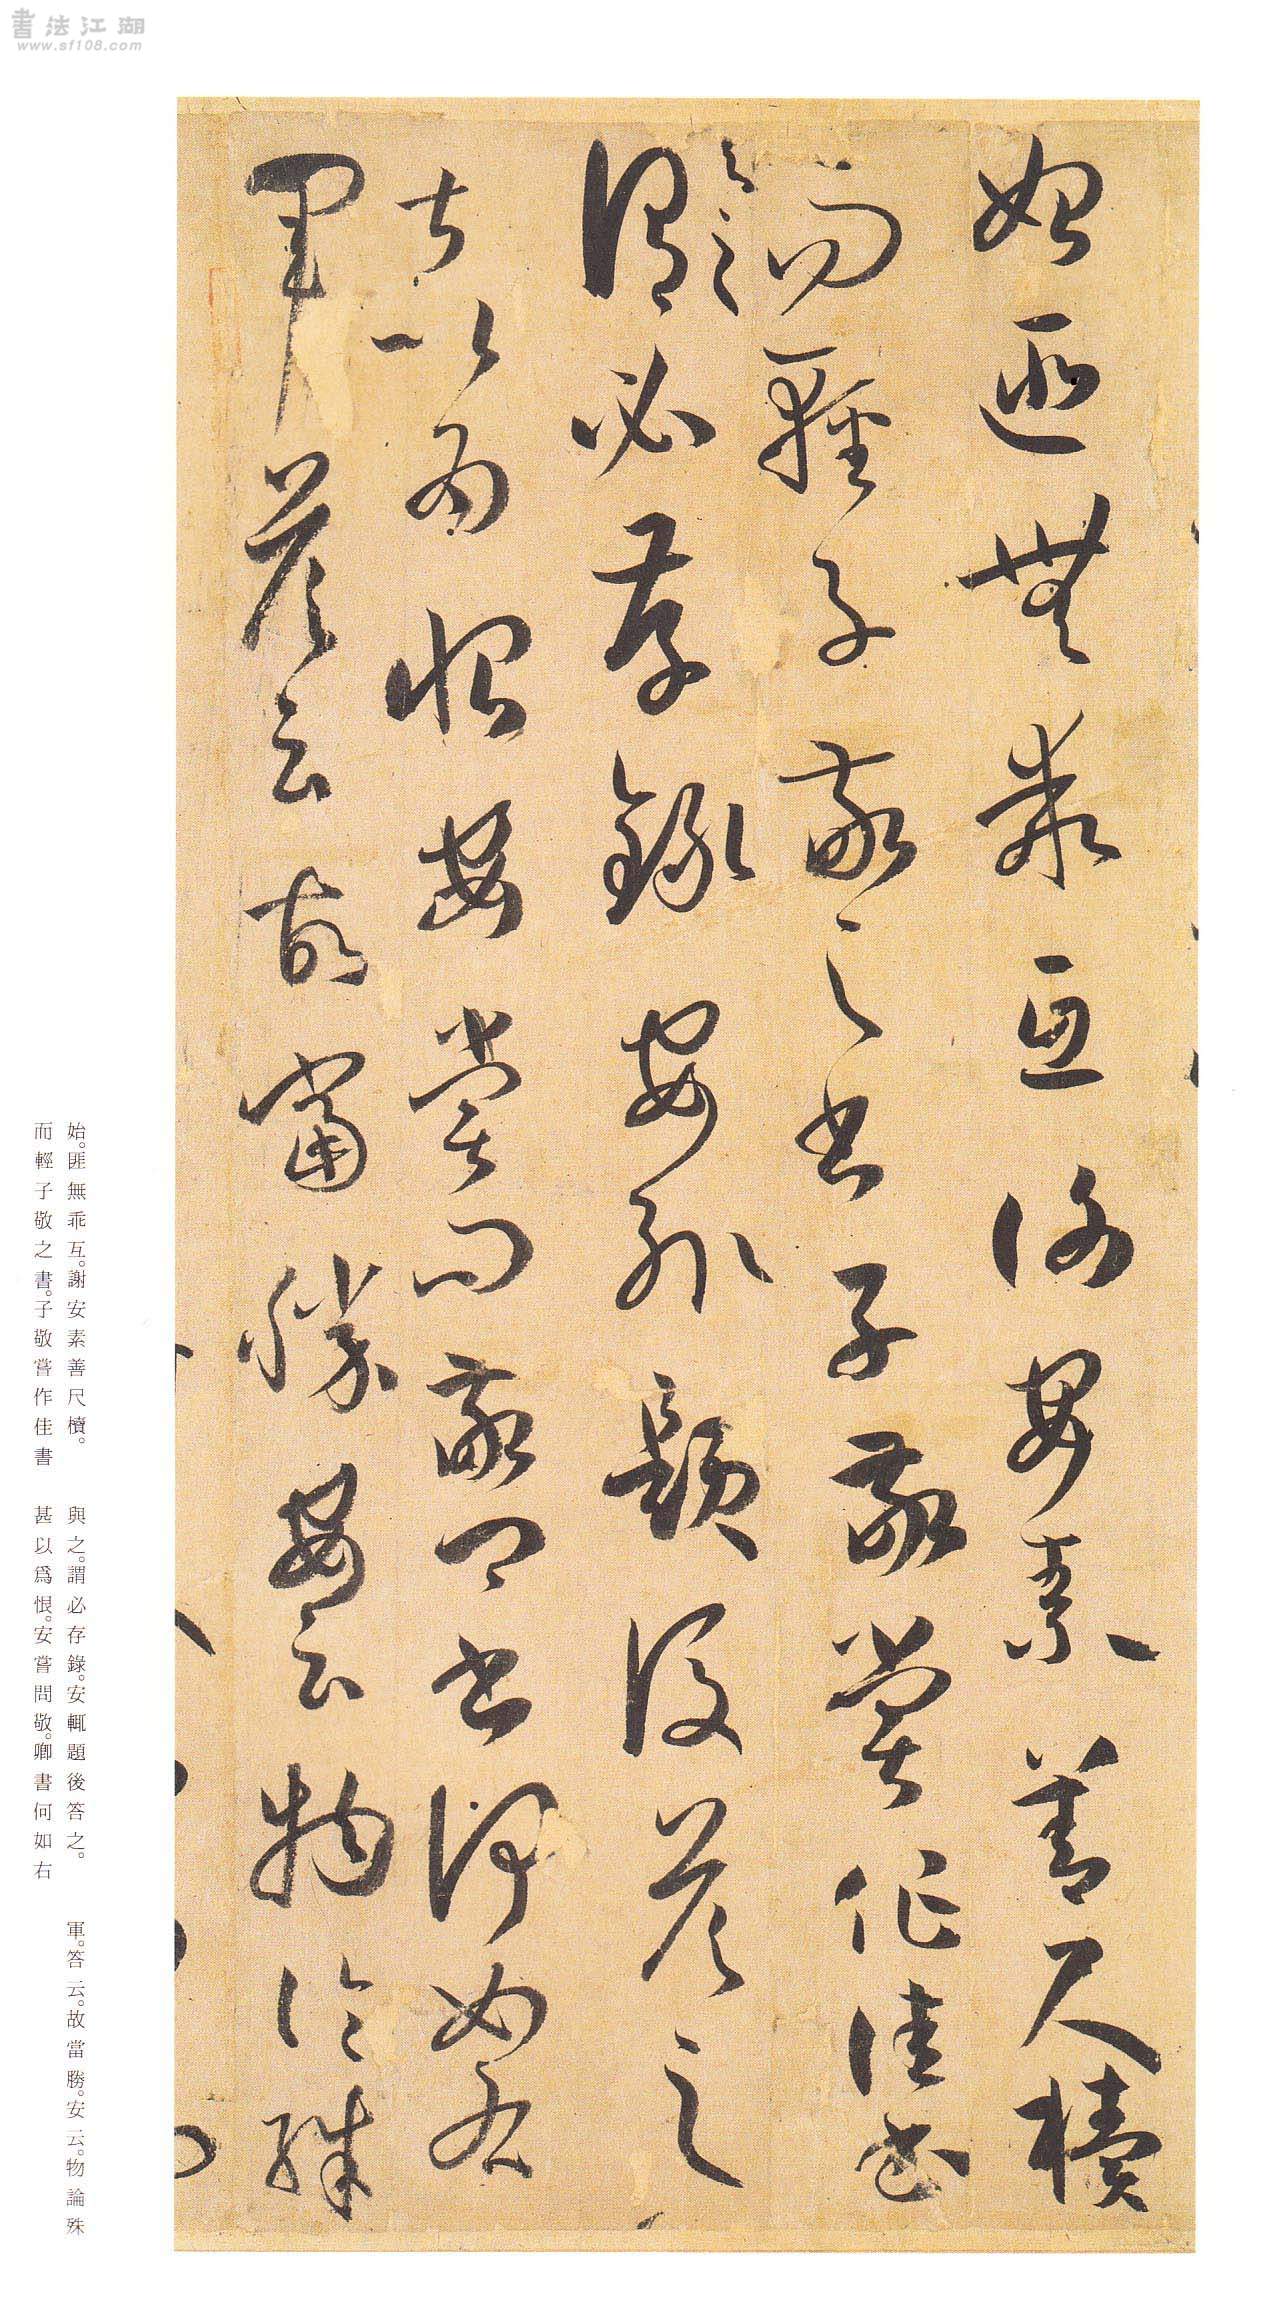 書法江湖
www.sf108.com
始匪無乖互謝安素善尺牘
而輕子敬之書子敬嘗作佳書
與之
謂必存錄安輒題後答之
甚以為恨安嘗問敬卿書何如右
軍答云故當勝安云物論殊
始。匪無乖互。謝安素善尺牘。
而輕子敬之書。子敬嘗作佳書
與之。謂必存錄。安輒題後答之。
甚以爲恨。安嘗問敬。卿書何如右
軍。答云。故當勝。安云。物論殊